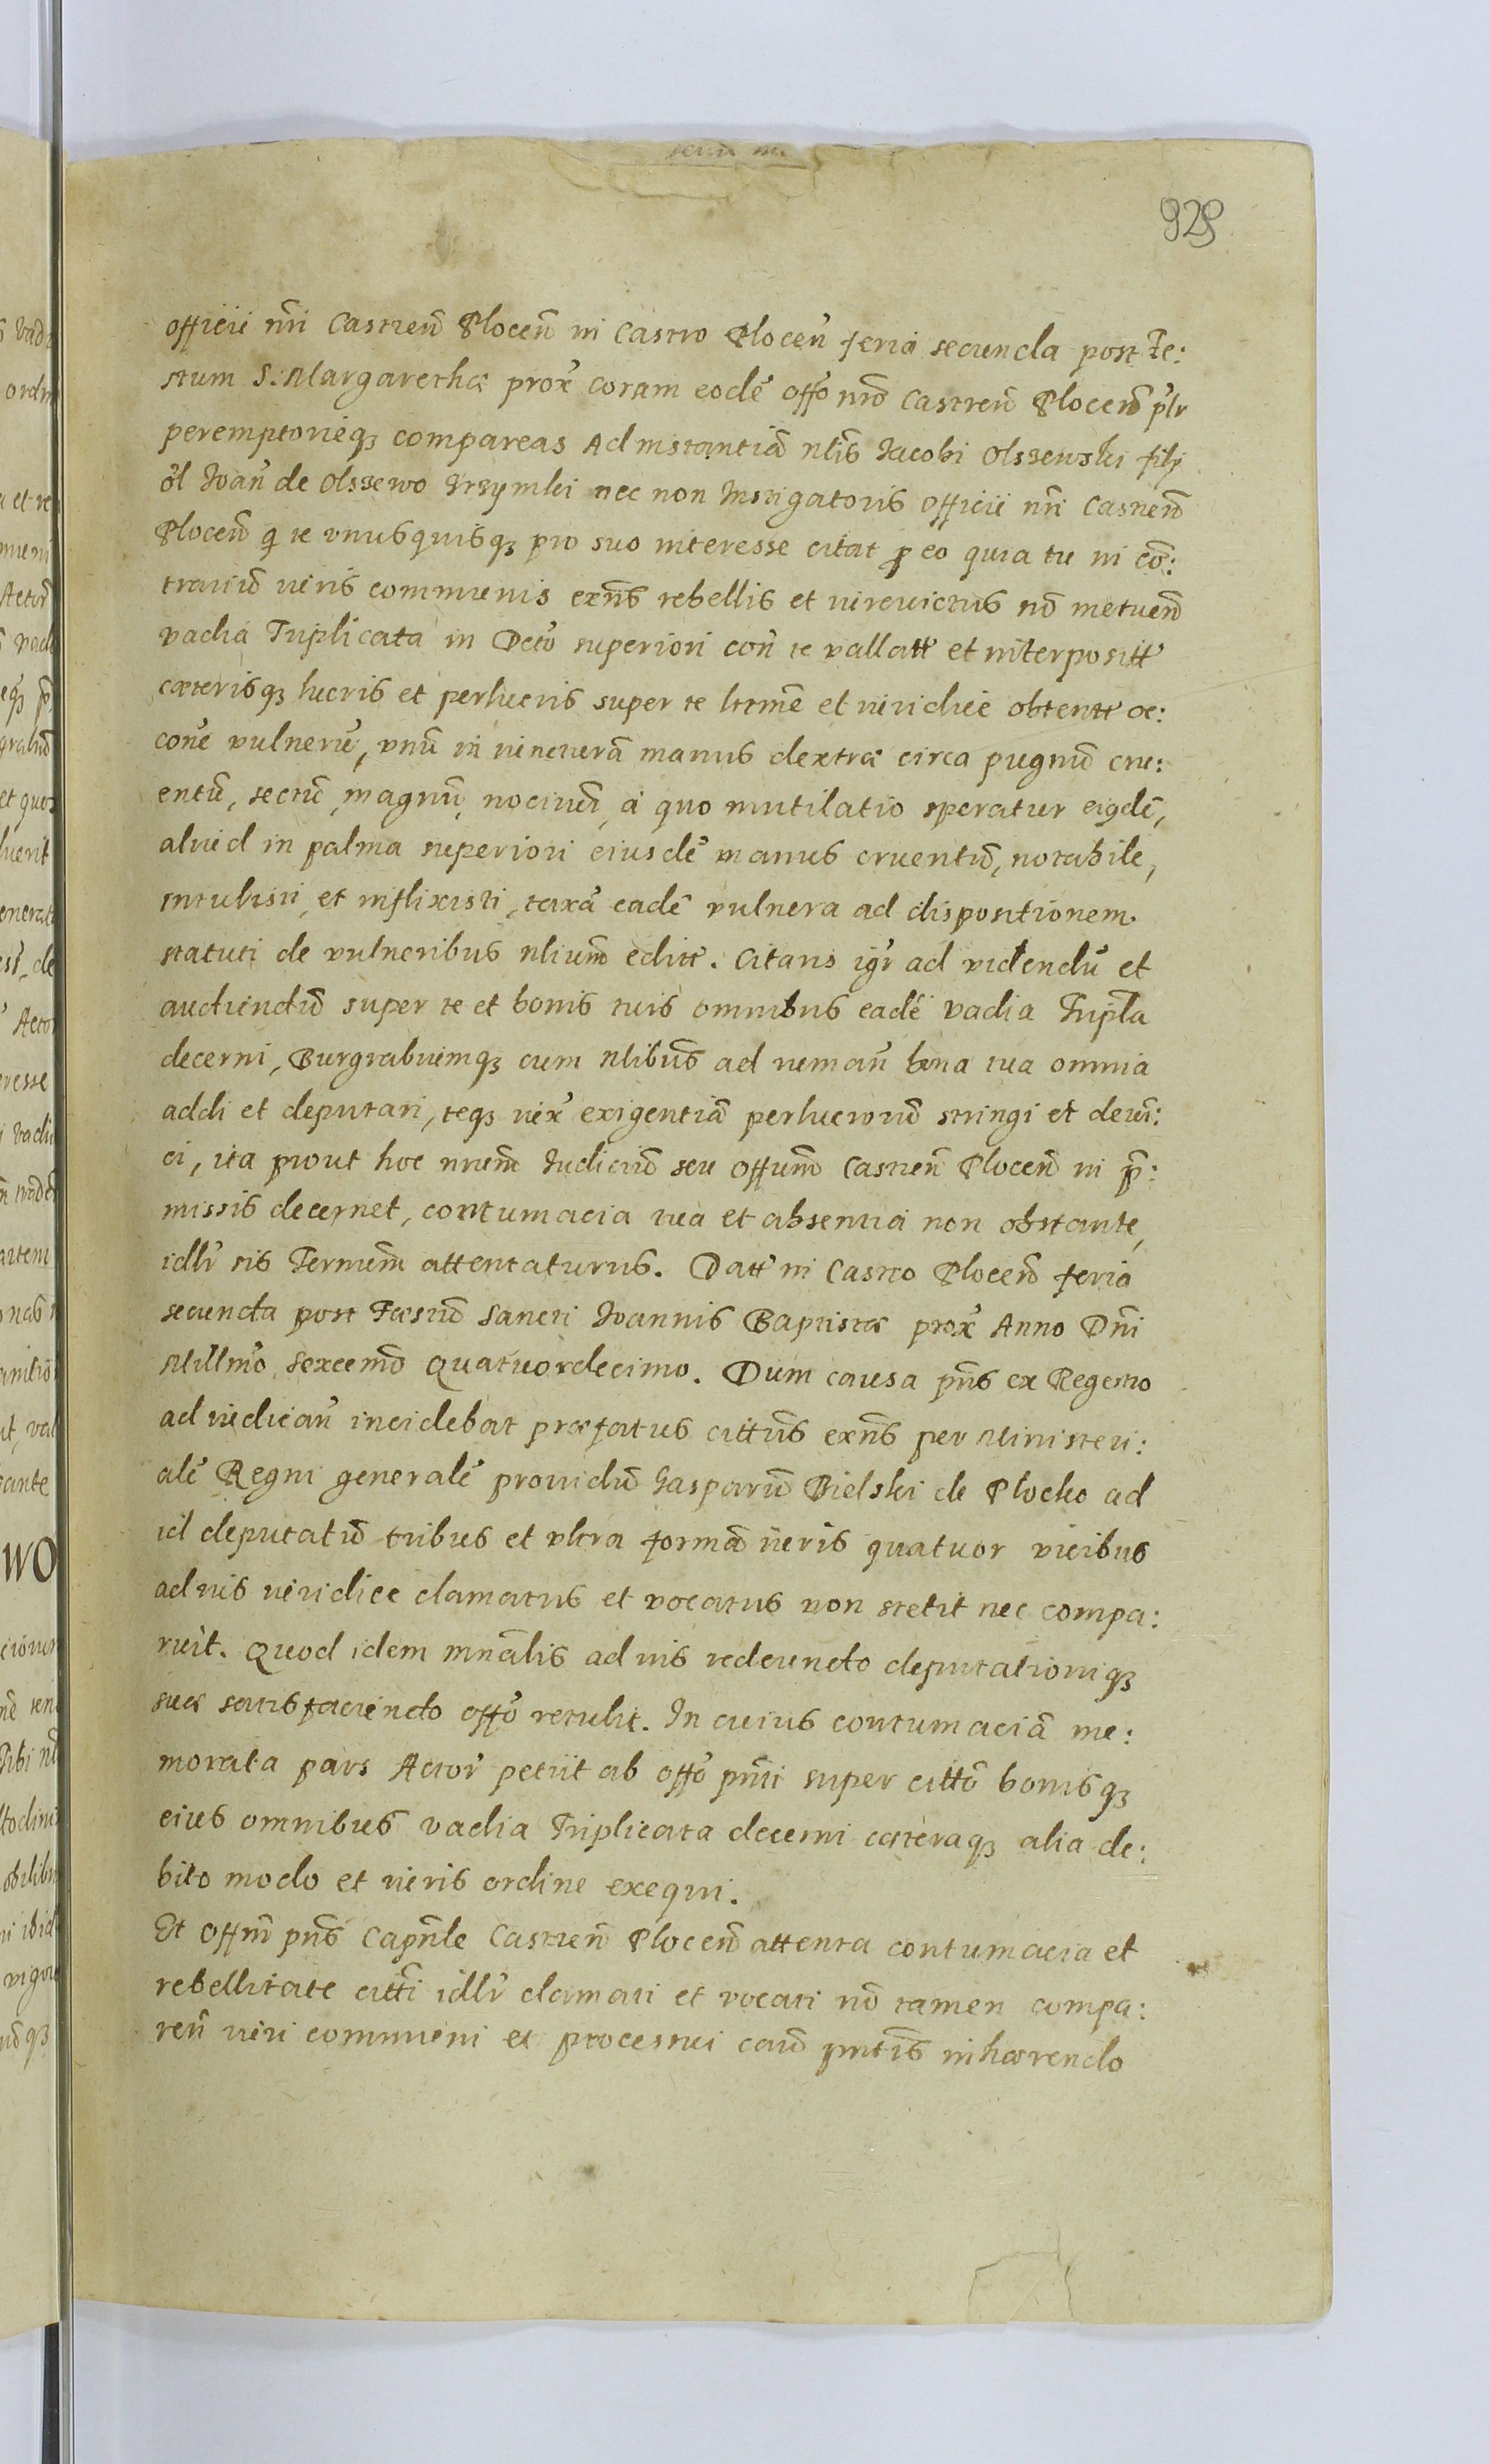 929
officii nri Castren Plocen in Castro Plocen feria secunda post Fe:
stum S. Margarethæ prox coram eodē offo nro Castren Plocen plr
peremptorieqꝫ compareas Ad instantiā nlis Jacobi Olszewski filij
ol Joan de Olszewo nec non Instigatoris Officii nri Castren
Plocen q te vnusquisqꝫ pro suo interesse citat p eo quia tu in cō:
trariū iuris communis exns rebellis et iurevictus nō metuen
vadia Triplicata in Decto superiori con te vallatt et interpositt
cæterisqꝫ lucris et perlucris super te lttme et iuridice obtentt oc:
cone vulnerū, vnū in iunctura manus dextræ circa pugnū cru:
entū, sectū, magnū, nociuū, a quo mutilatio speratur eiqdē,
aliud in palma superiori eiusdē manus cruentū, notabile,
intulisti, et inflixisti, taxā eadē vulnera ad dispositionem
statuti de vulneribus nlium editt. Citaris igr ad videndū et
audiendū super te et bonis tuis omnibus eadē vadia Tripla
decerni, Burgrabiumqꝫ cum nlibus ad ruman bona tua omnia
addi et deputari, teqꝫ iux exigentiā perlucrorū stringi et deuin:
ci, ita prout hoc nrum Iudiciū seu offum Castren Plocen in p:
missis decernet, contumacia tua et absentia non obstante,
idlr sis Termum attentaturus. Datt in Castro Plocen feria
secunda post Fæstū Sancti Joannis Baptistæ prox Anno Dni
Millmo, sexcemo quatuordecimo. Dum causa pns ex Regestro
ad iudican incidebat præfatus cittus exns per Ministeri:
alē Regni generalē prouidū Gasparū Bielski de Plocko ad
id deputatū tribus et vltra formā iuris quatuor vicibus
ad ius iuridice clamatus et vocatus non stetit nec compa:
ruit. Quod idem mnalis ad ius redeundo deputationiqꝫ
suæ satisfaciendo offo retulit. In cuius contumaciā me:
morata pars Actor petiit ab offo pnti super citto bonisqꝫ
eius omnibus vadia Triplicata decerni cæteraqꝫ alia de:
bito modo et iuris ordine exequi.
Et Offm pns Capnle Castren Plocen attenta contumacia et
rebellitate citti idlr clamati et vocati nō tamen compa:
ren iuri communi et processui caus pntis inhærendo